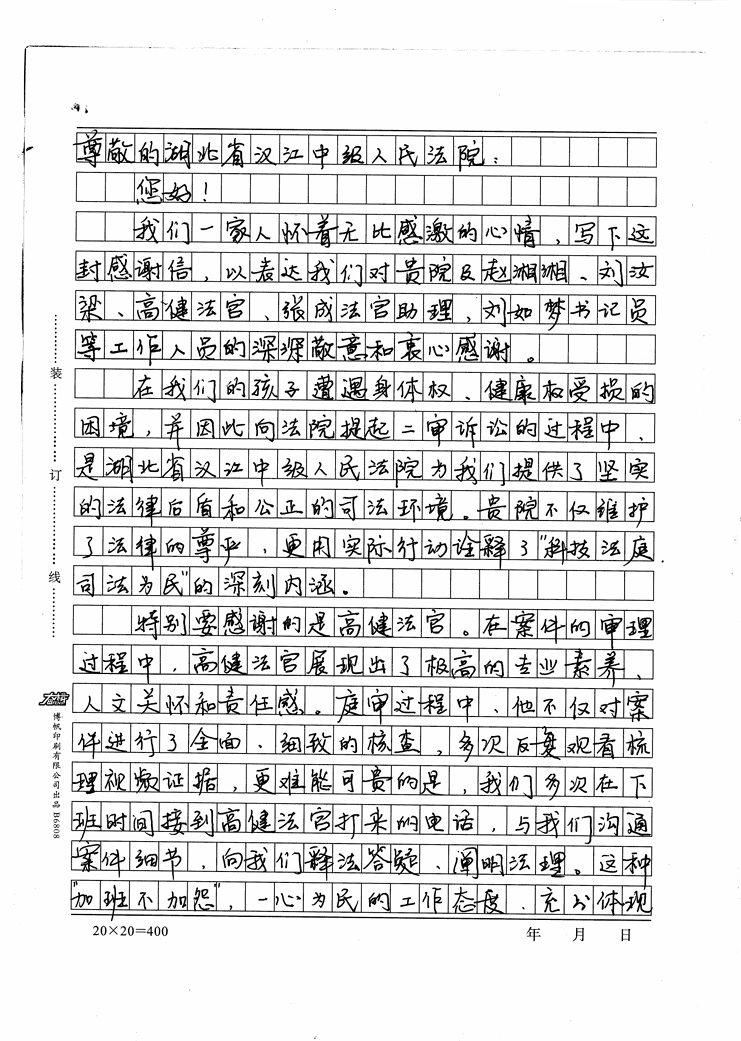 尊敬的湖北省汉江中级人民法院：
您好！
我们一家人怀着无比感激的心情，写下这
封感谢信，以表达我们对贵院及赵湘湘、刘汝
梁、高健法官、张成法官助理，刘如梦书记员
等工作人员的深深敬意和衷心感谢。
在我们的孩子遭遇身体权、健康权受损的
困境，并因此向法院提起二审诉讼的过程中，
是湖北省汉江中级人民法院为我们提供了坚实
的法律后盾和公正的司法环境。贵院不仅维护
了法律的尊严，更用实际行动诠释了"科技法庭
司法为民"的深刻内涵。
特别要感谢的是高健法官。在案件的审理
过程中，高健法官展现出了极高的专业素养、
人文关怀和责任感。庭审过程中，他不仅对案
件进行了全面、细致的核查，多次反复观看梳
理视频证据，更难能可贵的是，我们多次在下
班时间接到高健法官打来的电话，与我们沟通
案件细节，向我们释法答疑、阐明法理。这种
"加班不加怨"，一心为民的工作态度，充分体现
20×20=400
年 月 日
装
订
线
博帆印刷有限公司出品 B6808